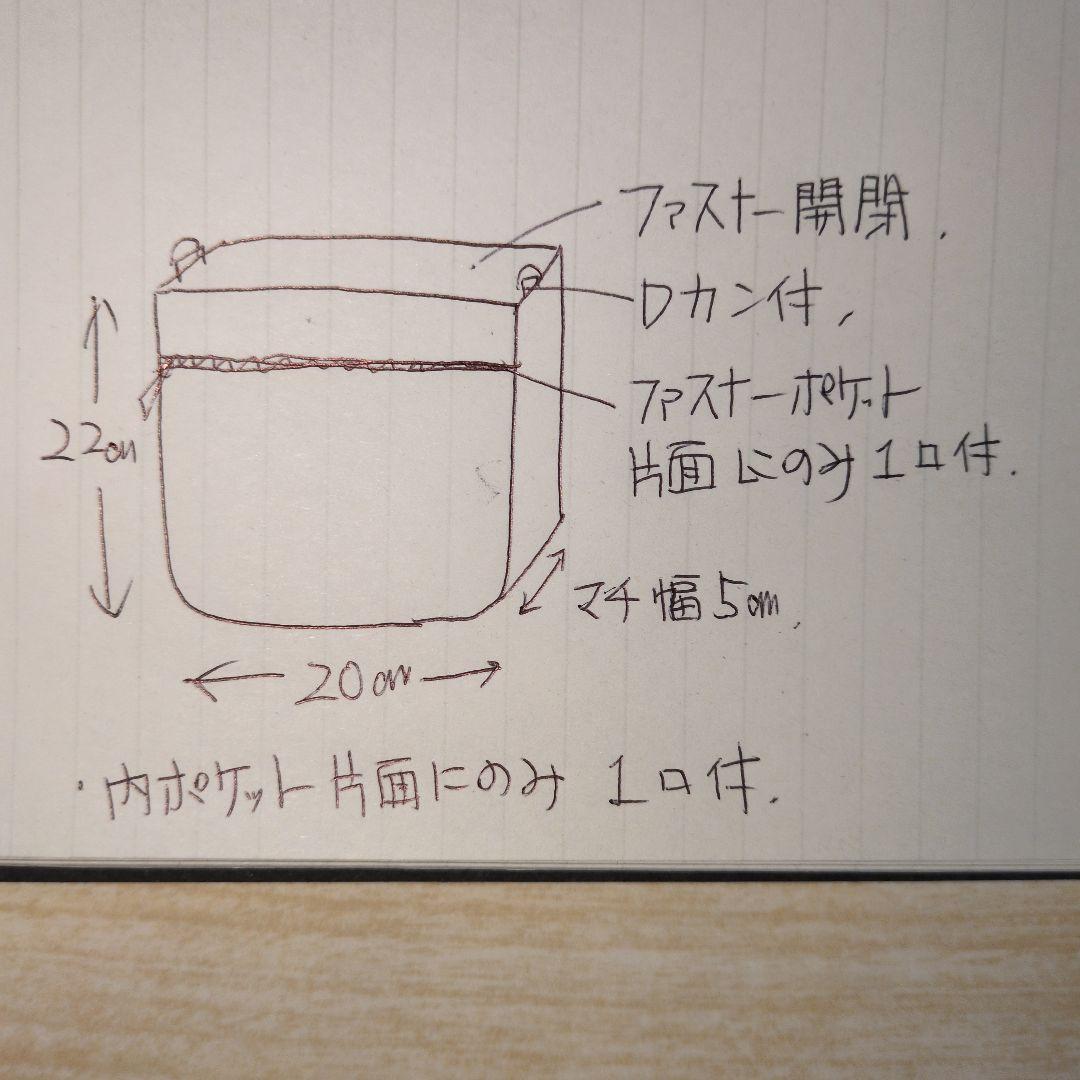 ファスナー開閉.
Dカン付,
ファスナーポケット
片面にのみ1口付.
22cm
マチ幅5cm.
20cm
・内ポケット片面にのみ 1口付.